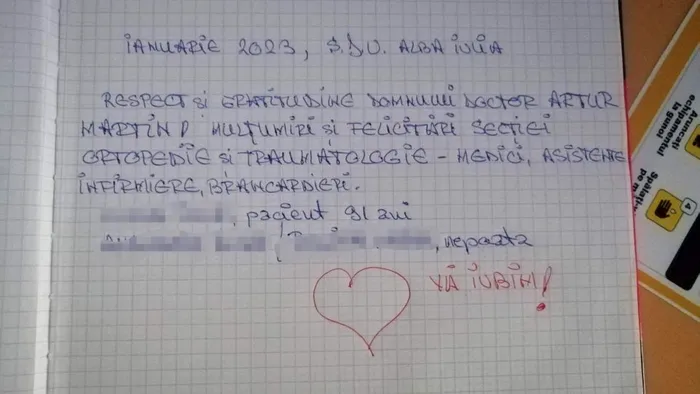 IANUARIE 2023, S.J.U. ALBA IULIA
RESPECT și GRATITUDINE DOMNULUI DOCTOR ARTUR
MARTIN! MULȚUMIRI și FELICITĂRI SECȚIEI
ORTOPEDIE și TRAUMATOLOGIE - MEDICI, ASISTENTE
INFIRMIERE, BRANCARDIERI.
, pacient 91 ani
, nepoata
VĂ IUBIM!
Aruncați
echipamentul
la gunoi
4
Spălați-v
pe m